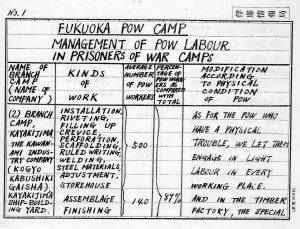 No. 1
FUKUOKA POW CAMP
MANAGEMENT OF POW LABOUR
IN PRISONERS OF WAR CAMPS
NAME OF BRANCH CAMP (NAME OF COMPANY)
KINDS OF WORK
AVERAGE NUMBER OF POW WORKERS
PERCENTAGE OF POW WORK TO BE COMPARED WITH TOTAL
MODIFICATION ACCORDING TO PHYSICAL CONDITION OF POW
(2) BRANCH CAMP, KAYAKIJIMA
THE KAWANAMI INDUSTRY COMPANY
(KOGYO KABUSHIKI GAISHA).
KAYAKIJIMA SHIP-BUILDING YARD.
INSTALLATION,
RIVETING,
FILLING UP
CREVICE,
PERFORATION,
SCAFFOLDING,
RULED WRITING,
WELDING,
STEEL MATERIALS
ADJUSTMENT,
STOREHOUSE
500
ASSEMBLAGE
FINISHING
140
89%
AS FOR THE POW WHO
HAVE A PHYSICAL
TROUBLE, WE LET THEM
ENGAGE IN LIGHT
LABOUR IN EVERY
WORKING PLACE.
AND IN THE TIMBER
FACTORY, THE SPECIAL